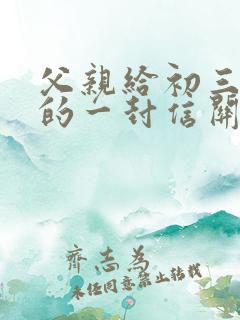 父親給初三
的一封信關
齊志為
未经同意禁止转载